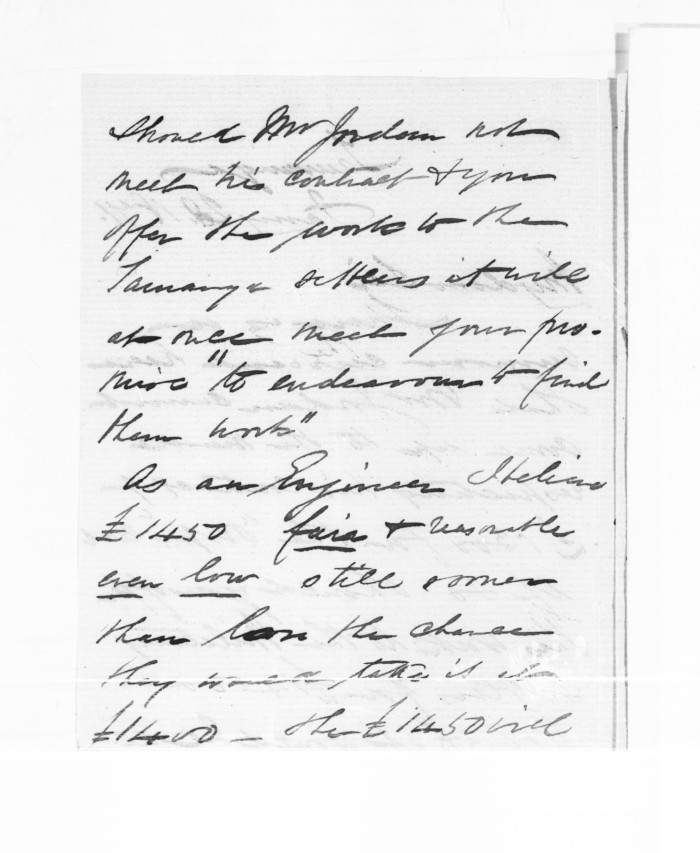 Should Mr Jordan not
meet his contract & you
offer the work to the
Tauranga settlers it will
at once meet your pro-
mise "to endeavour to find
them work"
As an Engineer I believe
£1450 fair & reasonable
even low still sooner
than lose the chance
they would take it at
£1400 – the £1450 will